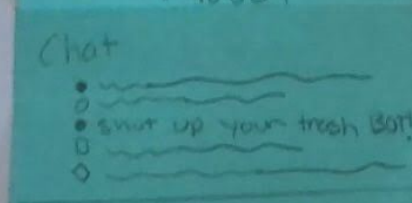 Chat
shut up your trash Bor!